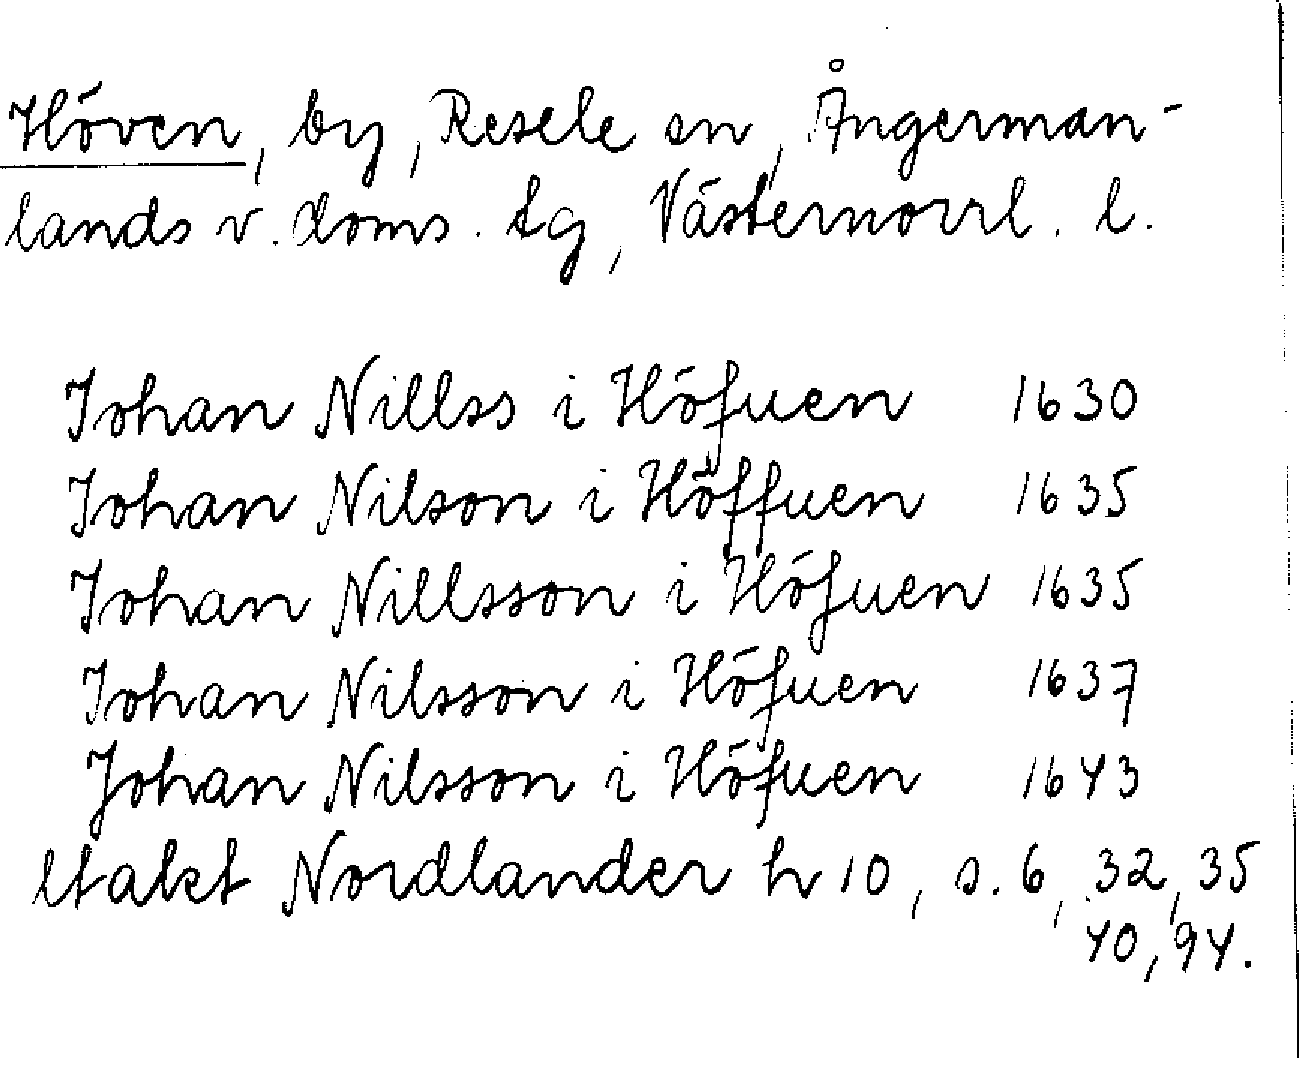 Höven, by, Resele sn, Ångerman-
lands v. doms. tg, Västernorrl. l.
Johan Nillss i Höfuen 1630
Johan Nilson i Höffuen 1635
Johan Nillsson i Höfuen 1635
Johan Nilsson i Höfuen 1637
Johan Nilsson i Höfuen 1643
Utakt Nordlander h 10, s. 6, 32, 35
40, 94.